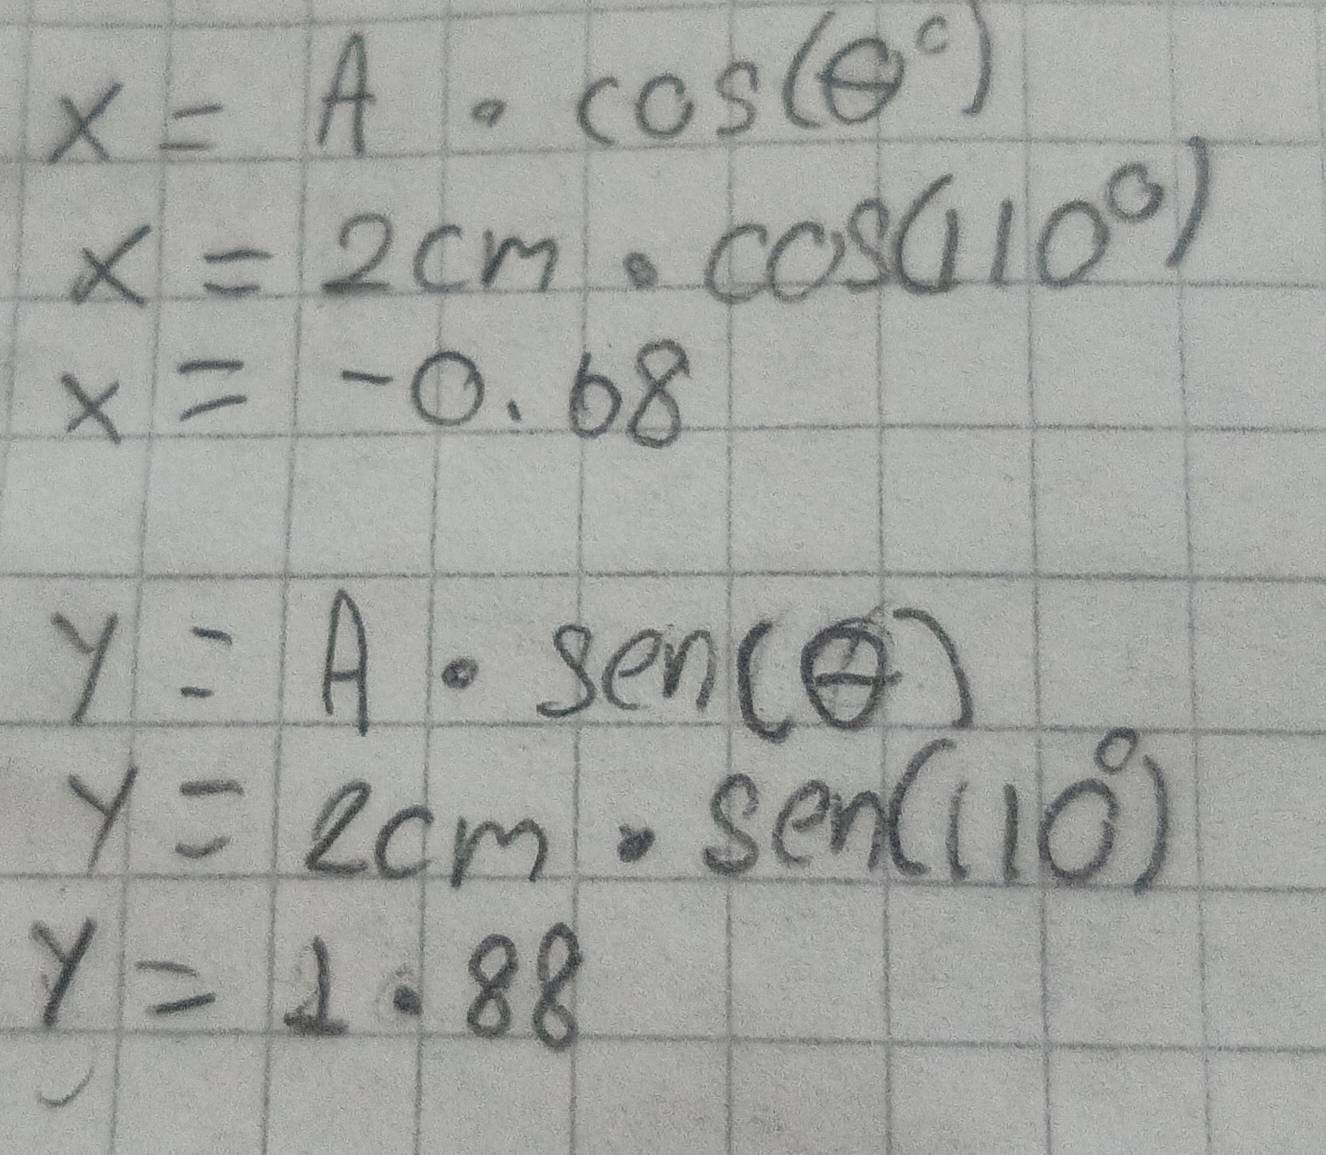 x = A · cos(θ°)
x = 2cm · cos(110°)
x = -0.68
y = A · sen(θ)
y = 2cm · sen(110°)
y = 1.88